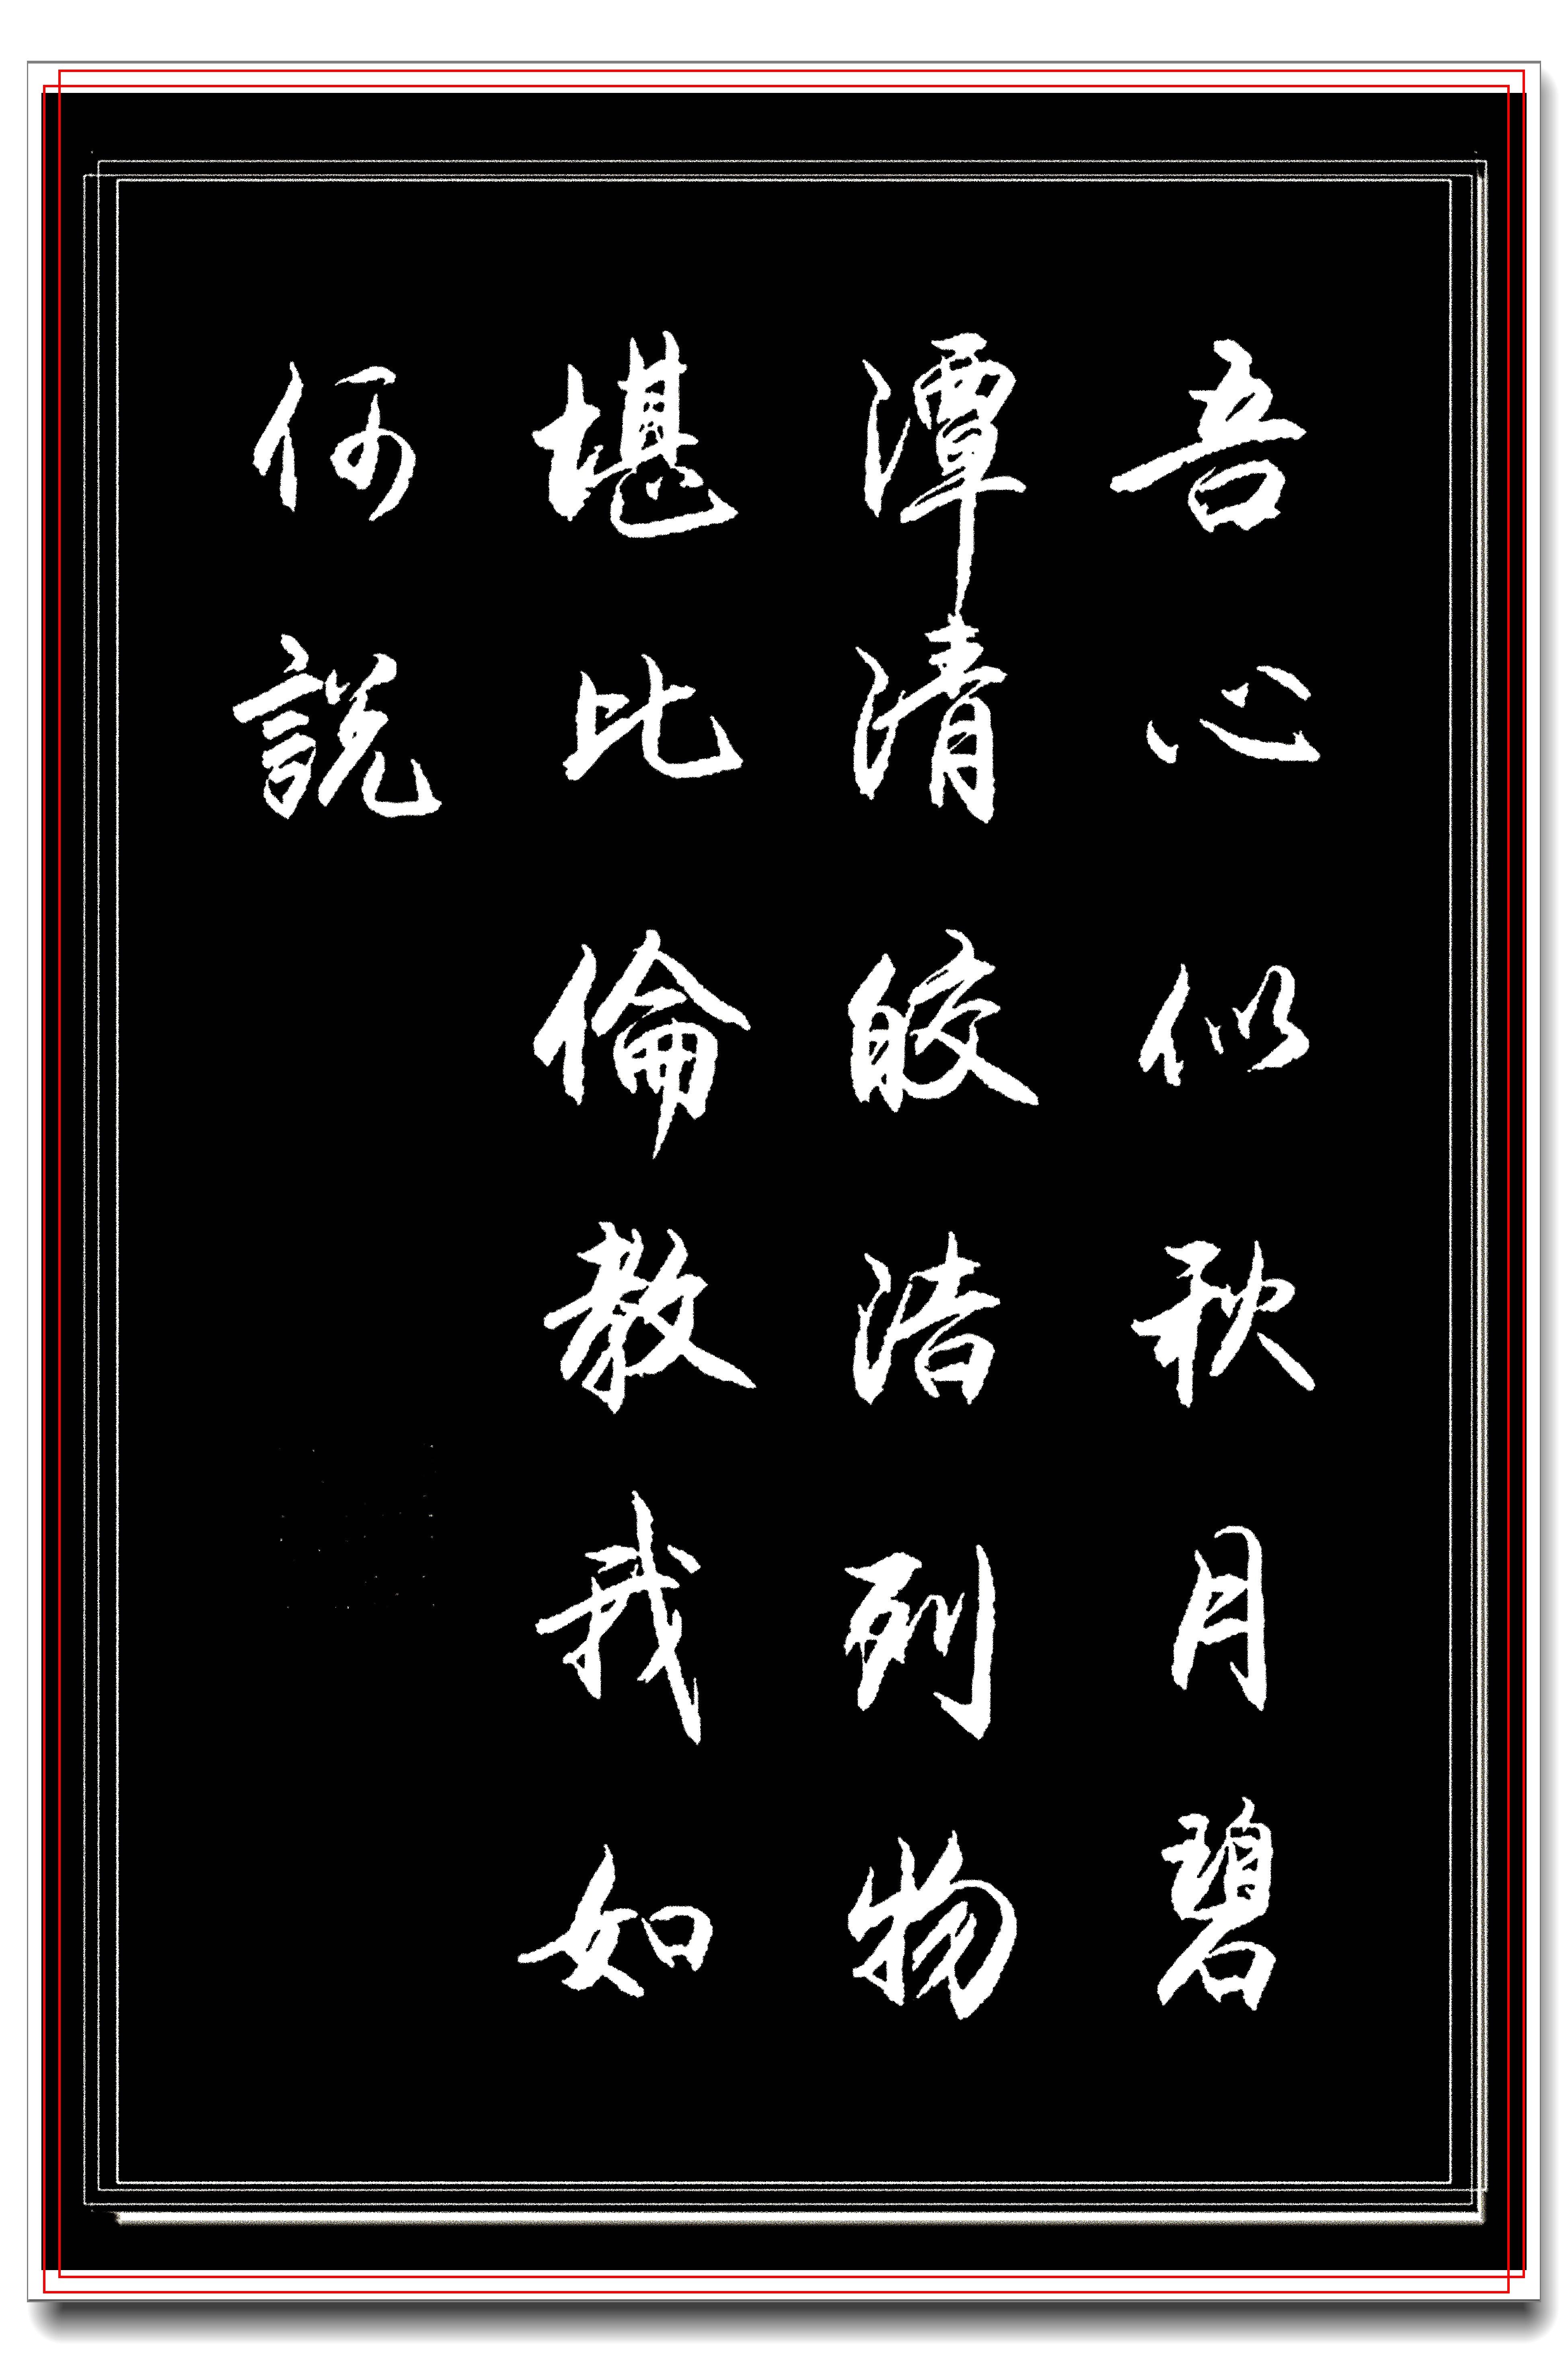 吾心似秋月碧
潭清皎洁列物
堪比倫教我如
何説